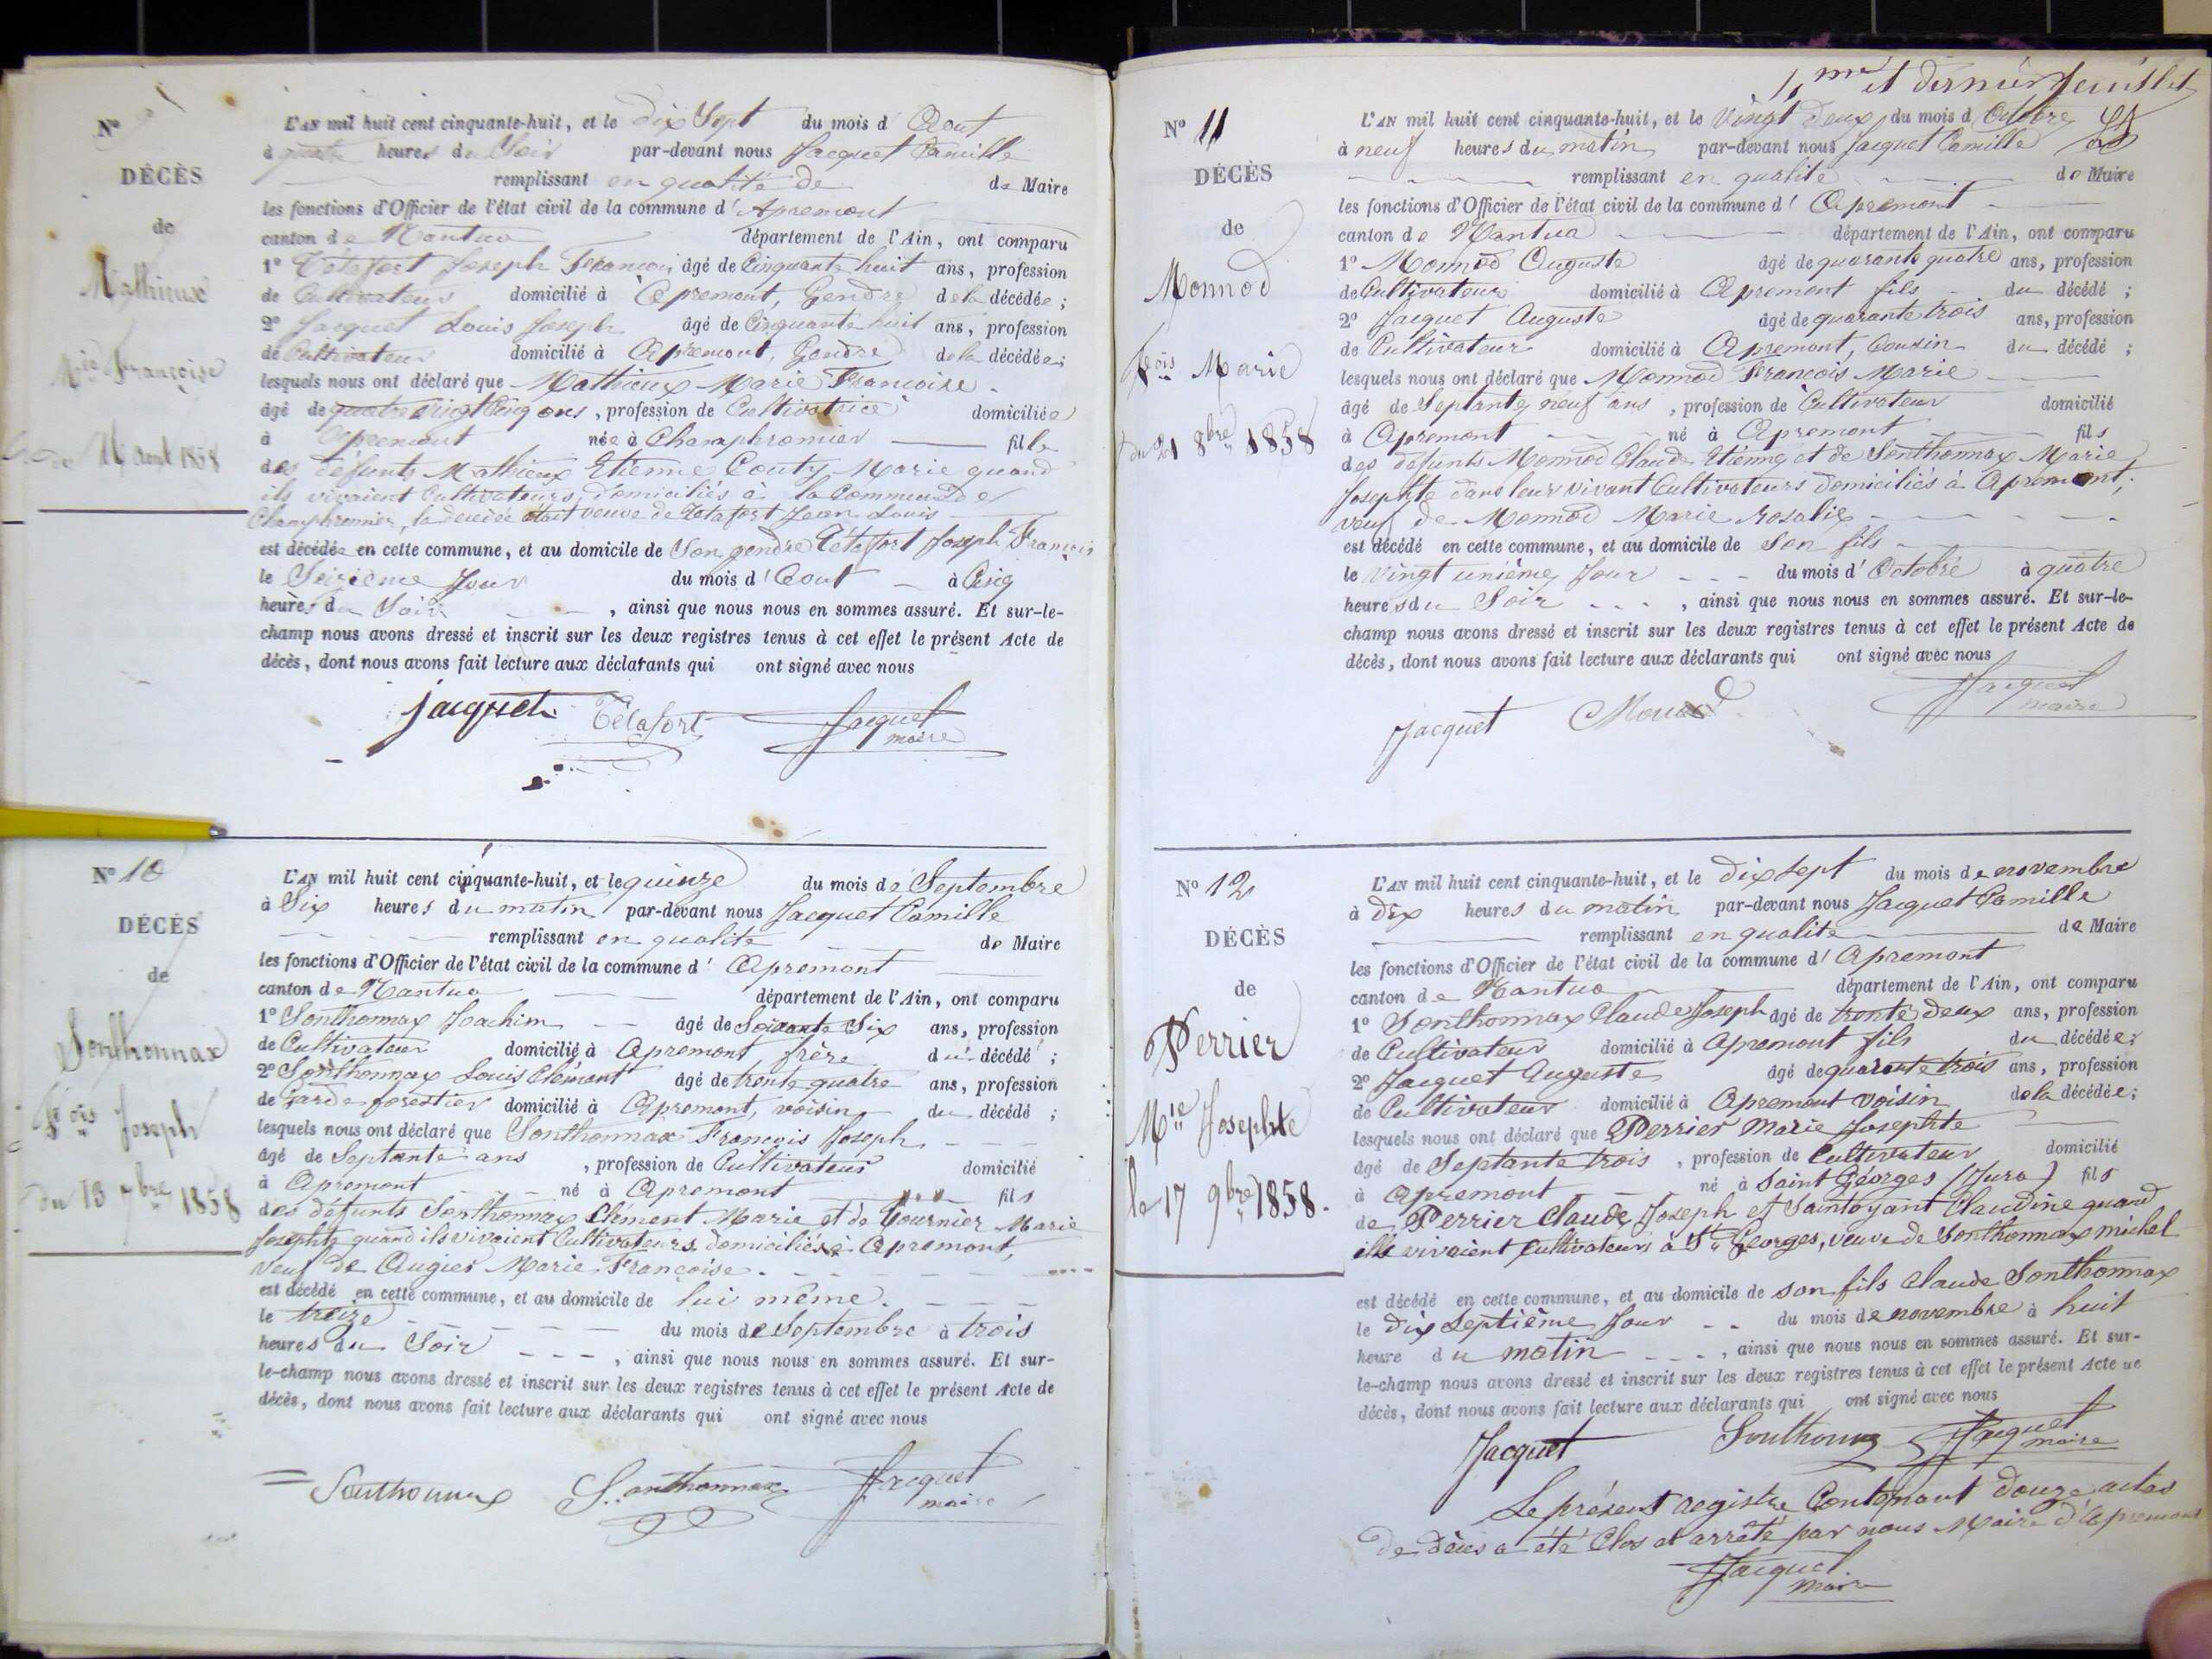 Nº
DÉCÈS
de
Mathieux
Mie Françoise
de 16 Aout 1858
L'AN mil huit cent cinquante-huit, et le dix Sept du mois d'Aout
à quatre heures du Soir par-devant nous Jacquet Camille
remplissant en qualité de de Maire
les fonctions d'Officier de l'état civil de la commune d'Apremont
canton de Nantua département de l'Ain, ont comparu
1º Tétafort Joseph François âgé de Cinquante huit ans, profession
de Cultivateur domicilié à Apremont, Gendre de la décédée;
2º Jacquet Louis Joseph âgé de Cinquante huit ans, profession
de Cultivateur domicilié à Apremont, Gendre de la décédée;
lesquels nous ont déclaré que Mathieux Marie Françoise
âgé de quatre vingt Cinq ans, profession de Cultivatrice domiciliée
à Apremont née à Champfromier fille
des défunts Mathieux Etienne Couty Marie quand
ils vivaient Cultivateurs, domiciliés à la Commune de
Champfromier, la décédée était veuve de Tétafort Jean Louis
est décédée en cette commune, et au domicile de Son gendre Tétafort Joseph François
le Seizième Jour du mois d'Aout à Cinq
heures du Soir, ainsi que nous nous en sommes assuré. Et sur-le-
champ nous avons dressé et inscrit sur les deux registres tenus à cet effet le présent Acte de
décès, dont nous avons fait lecture aux déclarants qui ont signé avec nous
Jacquet Tétafort Jacquet
maire
Nº 10
DÉCÈS
de
Sonthonnax
Fçois Joseph
du 13 7bre 1858
L'AN mil huit cent cinquante-huit, et le quinze du mois de Septembre
à Six heures du matin par-devant nous Jacquet Camille
remplissant en qualité de Maire
les fonctions d'Officier de l'état civil de la commune d'Apremont
canton de Nantua département de l'Ain, ont comparu
1º Sonthonnax Joachim âgé de Soixante Six ans, profession
de Cultivateur domicilié à Apremont, frère du décédé;
2º Sonthonnax Louis Clément âgé de trente quatre ans, profession
de Garde forestier domicilié à Apremont, voisin du décédé;
lesquels nous ont déclaré que Sonthonnax François Joseph
âgé de Septante ans, profession de Cultivateur domicilié
à Apremont né à Apremont fils
des défunts Sonthonnax Clément Marie et de Tournier Marie
Josephte quand ils vivaient Cultivateurs domiciliés à Apremont,
veuf de Augier Marie Françoise
est décédé en cette commune, et au domicile de lui même.
le treize du mois de Septembre à trois
heures du Soir, ainsi que nous nous en sommes assuré. Et sur-
le-champ nous avons dressé et inscrit sur les deux registres tenus à cet effet le présent Acte de
décès, dont nous avons fait lecture aux déclarants qui ont signé avec nous
Sonthonnax Sonthonnax Jacquet
maire
et dernier feuillet
Nº 11
DÉCÈS
de
Monnod
Fçois Marie
du 21 8bre 1858
L'AN mil huit cent cinquante-huit, et le Vingt Deux du mois d'Octobre
à neuf heures du matin par-devant nous Jacquet Camille
remplissant en qualité de Maire
les fonctions d'Officier de l'état civil de la commune d'Apremont
canton de Nantua département de l'Ain, ont comparu
1º Monnod Auguste âgé de quarante quatre ans, profession
de Cultivateur domicilié à Apremont fils du décédé;
2º Jacquet Auguste âgé de quarante trois ans, profession
de Cultivateur domicilié à Apremont, Cousin du décédé;
lesquels nous ont déclaré que Monnod François Marie
âgé de Septante neuf ans, profession de Cultivateur domicilié
à Apremont né à Apremont fils
des défunts Monnod Claude Etienne et de Sonthonnax Marie
Josephte dans leur vivant Cultivateurs domiciliés à Apremont,
veuf de Monnod Marie Rosalie
est décédé en cette commune, et au domicile de Son fils
le Vingt unième Jour du mois d'Octobre à quatre
heures du Soir, ainsi que nous nous en sommes assuré. Et sur-le-
champ nous avons dressé et inscrit sur les deux registres tenus à cet effet le présent Acte de
décès, dont nous avons fait lecture aux déclarants qui ont signé avec nous
Jacquet Monnod Jacquet
maire
Nº 12
DÉCÈS
de
Perrier
Mie Josephte
le 17 9bre 1858.
L'AN mil huit cent cinquante-huit, et le Dix Sept du mois de novembre
à Dix heures du matin par-devant nous Jacquet Camille
remplissant en qualité de Maire
les fonctions d'Officier de l'état civil de la commune d'Apremont
canton de Nantua département de l'Ain, ont comparu
1º Sonthonnax Claude Joseph âgé de trente deux ans, profession
de Cultivateur domicilié à Apremont fils du décédée;
2º Jacquet Auguste âgé de quarante trois ans, profession
de Cultivateur domicilié à Apremont voisin de la décédée;
lesquels nous ont déclaré que Perrier Marie Josephte
âgé de Septante trois, profession de Cultivateur domicilié
à Apremont né à Saint Géorges (Jura) fils
de Perrier Claude Joseph et Saintoyant Claudine quand
elle vivaient Cultivateurs à St Georges, veuve de Sonthonnax michel
est décédé en cette commune, et au domicile de son fils Claude Sonthonnax
le Dix Septième Jour du mois de novembre à huit
heure du matin, ainsi que nous nous en sommes assuré. Et sur-
le-champ nous avons dressé et inscrit sur les deux registres tenus à cet effet le présent Acte de
décès, dont nous avons fait lecture aux déclarants qui ont signé avec nous
Jacquet Sonthonnax Jacquet
maire
Le présent registre Contenant Douze actes
de décès a été Clos et arrêté par nous Maire d'Apremont
Jacquet
Maire